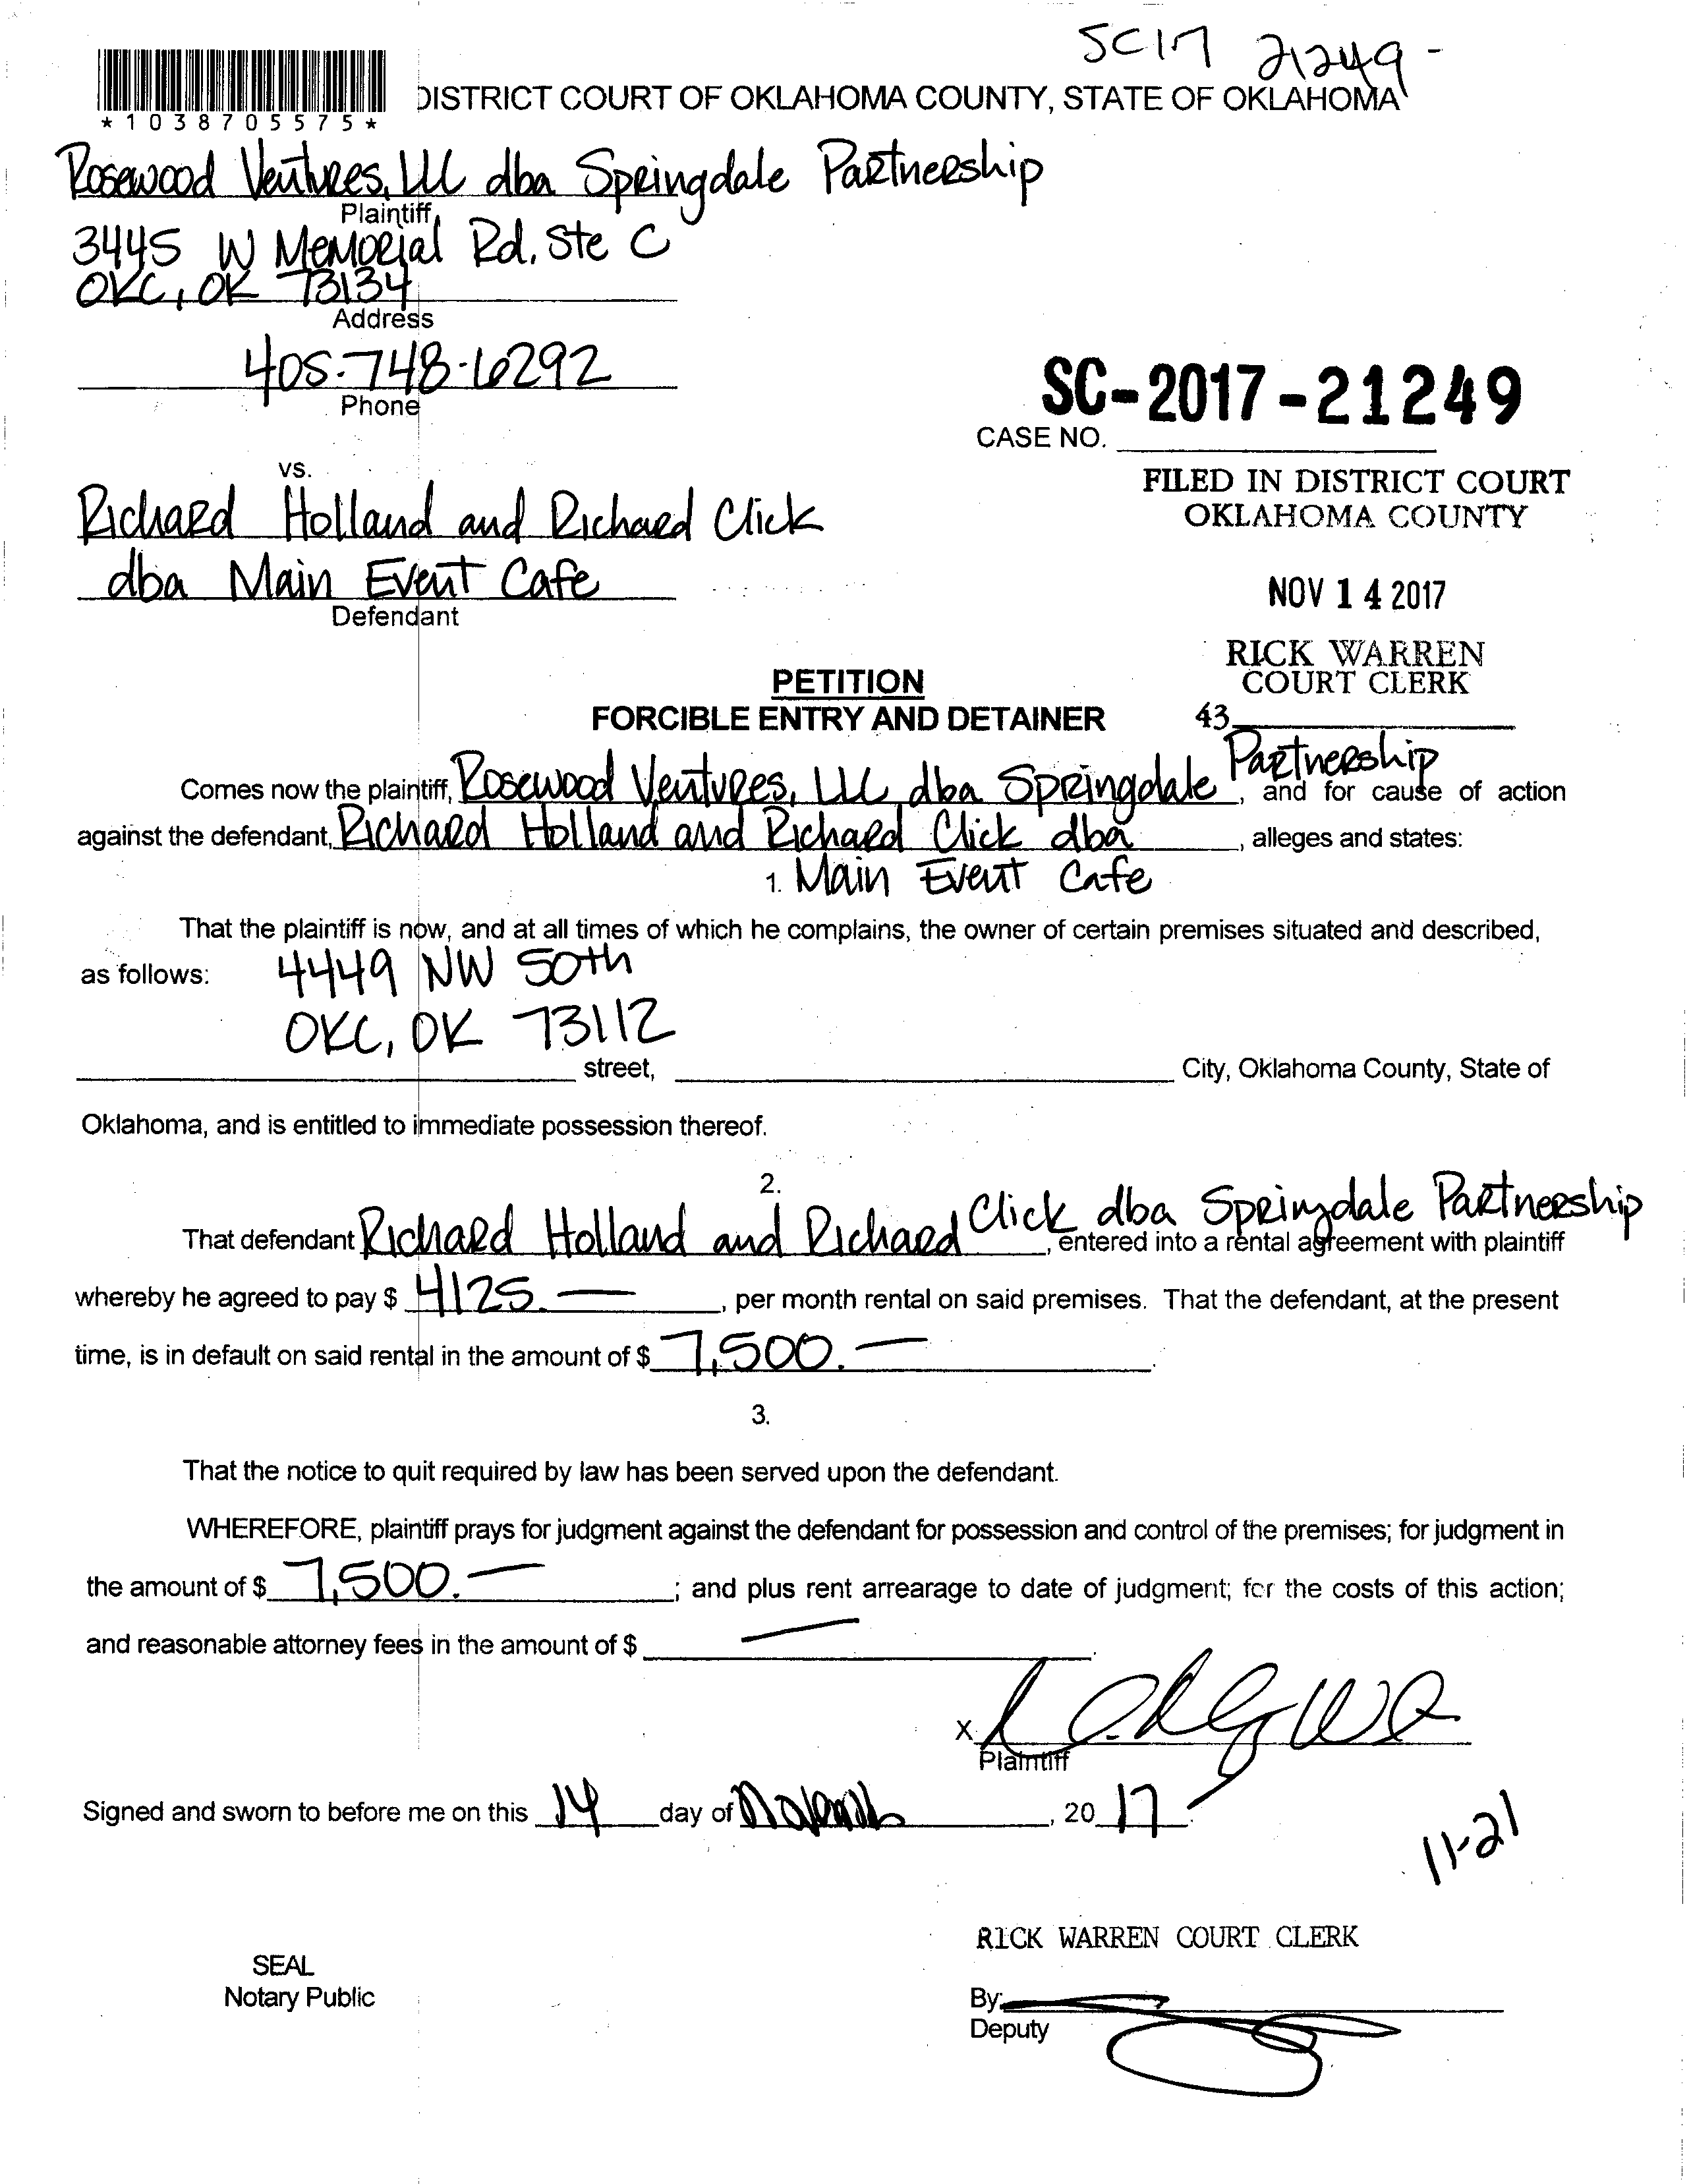 SC17 21249-
*1038705575*
DISTRICT COURT OF OKLAHOMA COUNTY, STATE OF OKLAHOMA
Rosewood Ventures, LLC dba Springdale Partnership
Plaintiff,
3445 W Memorial Rd. Ste C
OKC, OK 73134
Address
405-748-6292
Phone
SC-2017-21249
CASE NO.
vs.
FILED IN DISTRICT COURT
OKLAHOMA COUNTY
Richard Holland and Richard Click
dba Main Event Cafe
Defendant
NOV 14 2017
RICK WARREN
COURT CLERK
43
PETITION
FORCIBLE ENTRY AND DETAINER
Comes now the plaintiff, Rosewood Ventures, LLC dba Springdale Partnership, and for cause of action
against the defendant, Richard Holland and Richard Click dba, alleges and states:
1. Main Event Cafe
That the plaintiff is now, and at all times of which he complains, the owner of certain premises situated and described,
as follows: 4449 NW 50th
OKC, OK 73112
street, City, Oklahoma County, State of
Oklahoma, and is entitled to immediate possession thereof.
2.
That defendant Richard Holland and Richard Click dba Springdale Partnership, entered into a rental agreement with plaintiff
whereby he agreed to pay $ 4125.—, per month rental on said premises. That the defendant, at the present
time, is in default on said rental in the amount of $ 7,500.—.
3.
That the notice to quit required by law has been served upon the defendant.
WHEREFORE, plaintiff prays for judgment against the defendant for possession and control of the premises; for judgment in
the amount of $ 7,500.—; and plus rent arrearage to date of judgment; for the costs of this action;
and reasonable attorney fees in the amount of $ —.
X
Plaintiff
Signed and sworn to before me on this 14 day of November, 20 17.
11-21
RICK WARREN COURT CLERK
SEAL
Notary Public
By:
Deputy